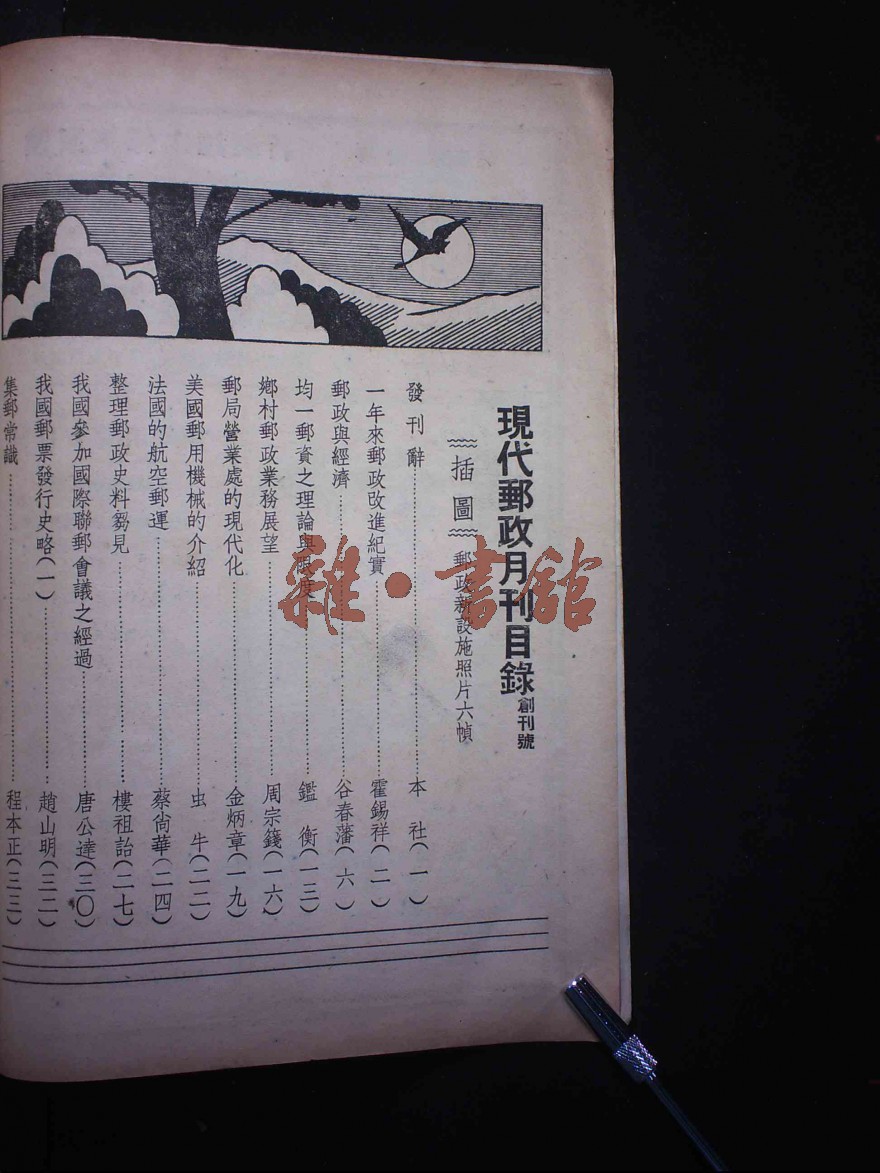 現代郵政月刊目錄 創刊號
插圖 郵政新設施照片六幀
發刊辭 本社(一)
一年來郵政改進紀實 霍錫祥(二)
郵政與經濟 谷春藩(六)
均一郵資之理論與限度 鑑衡(一三)
鄉村郵政業務展望 周宗籛(一六)
郵局營業處的現代化 金炳章(一九)
美國郵用機械的介紹 虫牛(二二)
法國的航空郵運 蔡尙華(二四)
整理郵政史料芻見 樓祖詒(二七)
我國參加國際聯郵會議之經過 唐公達(三〇)
我國郵票發行史略(一) 趙山明(三二)
集郵常識 程本正(三三)
雜·書館